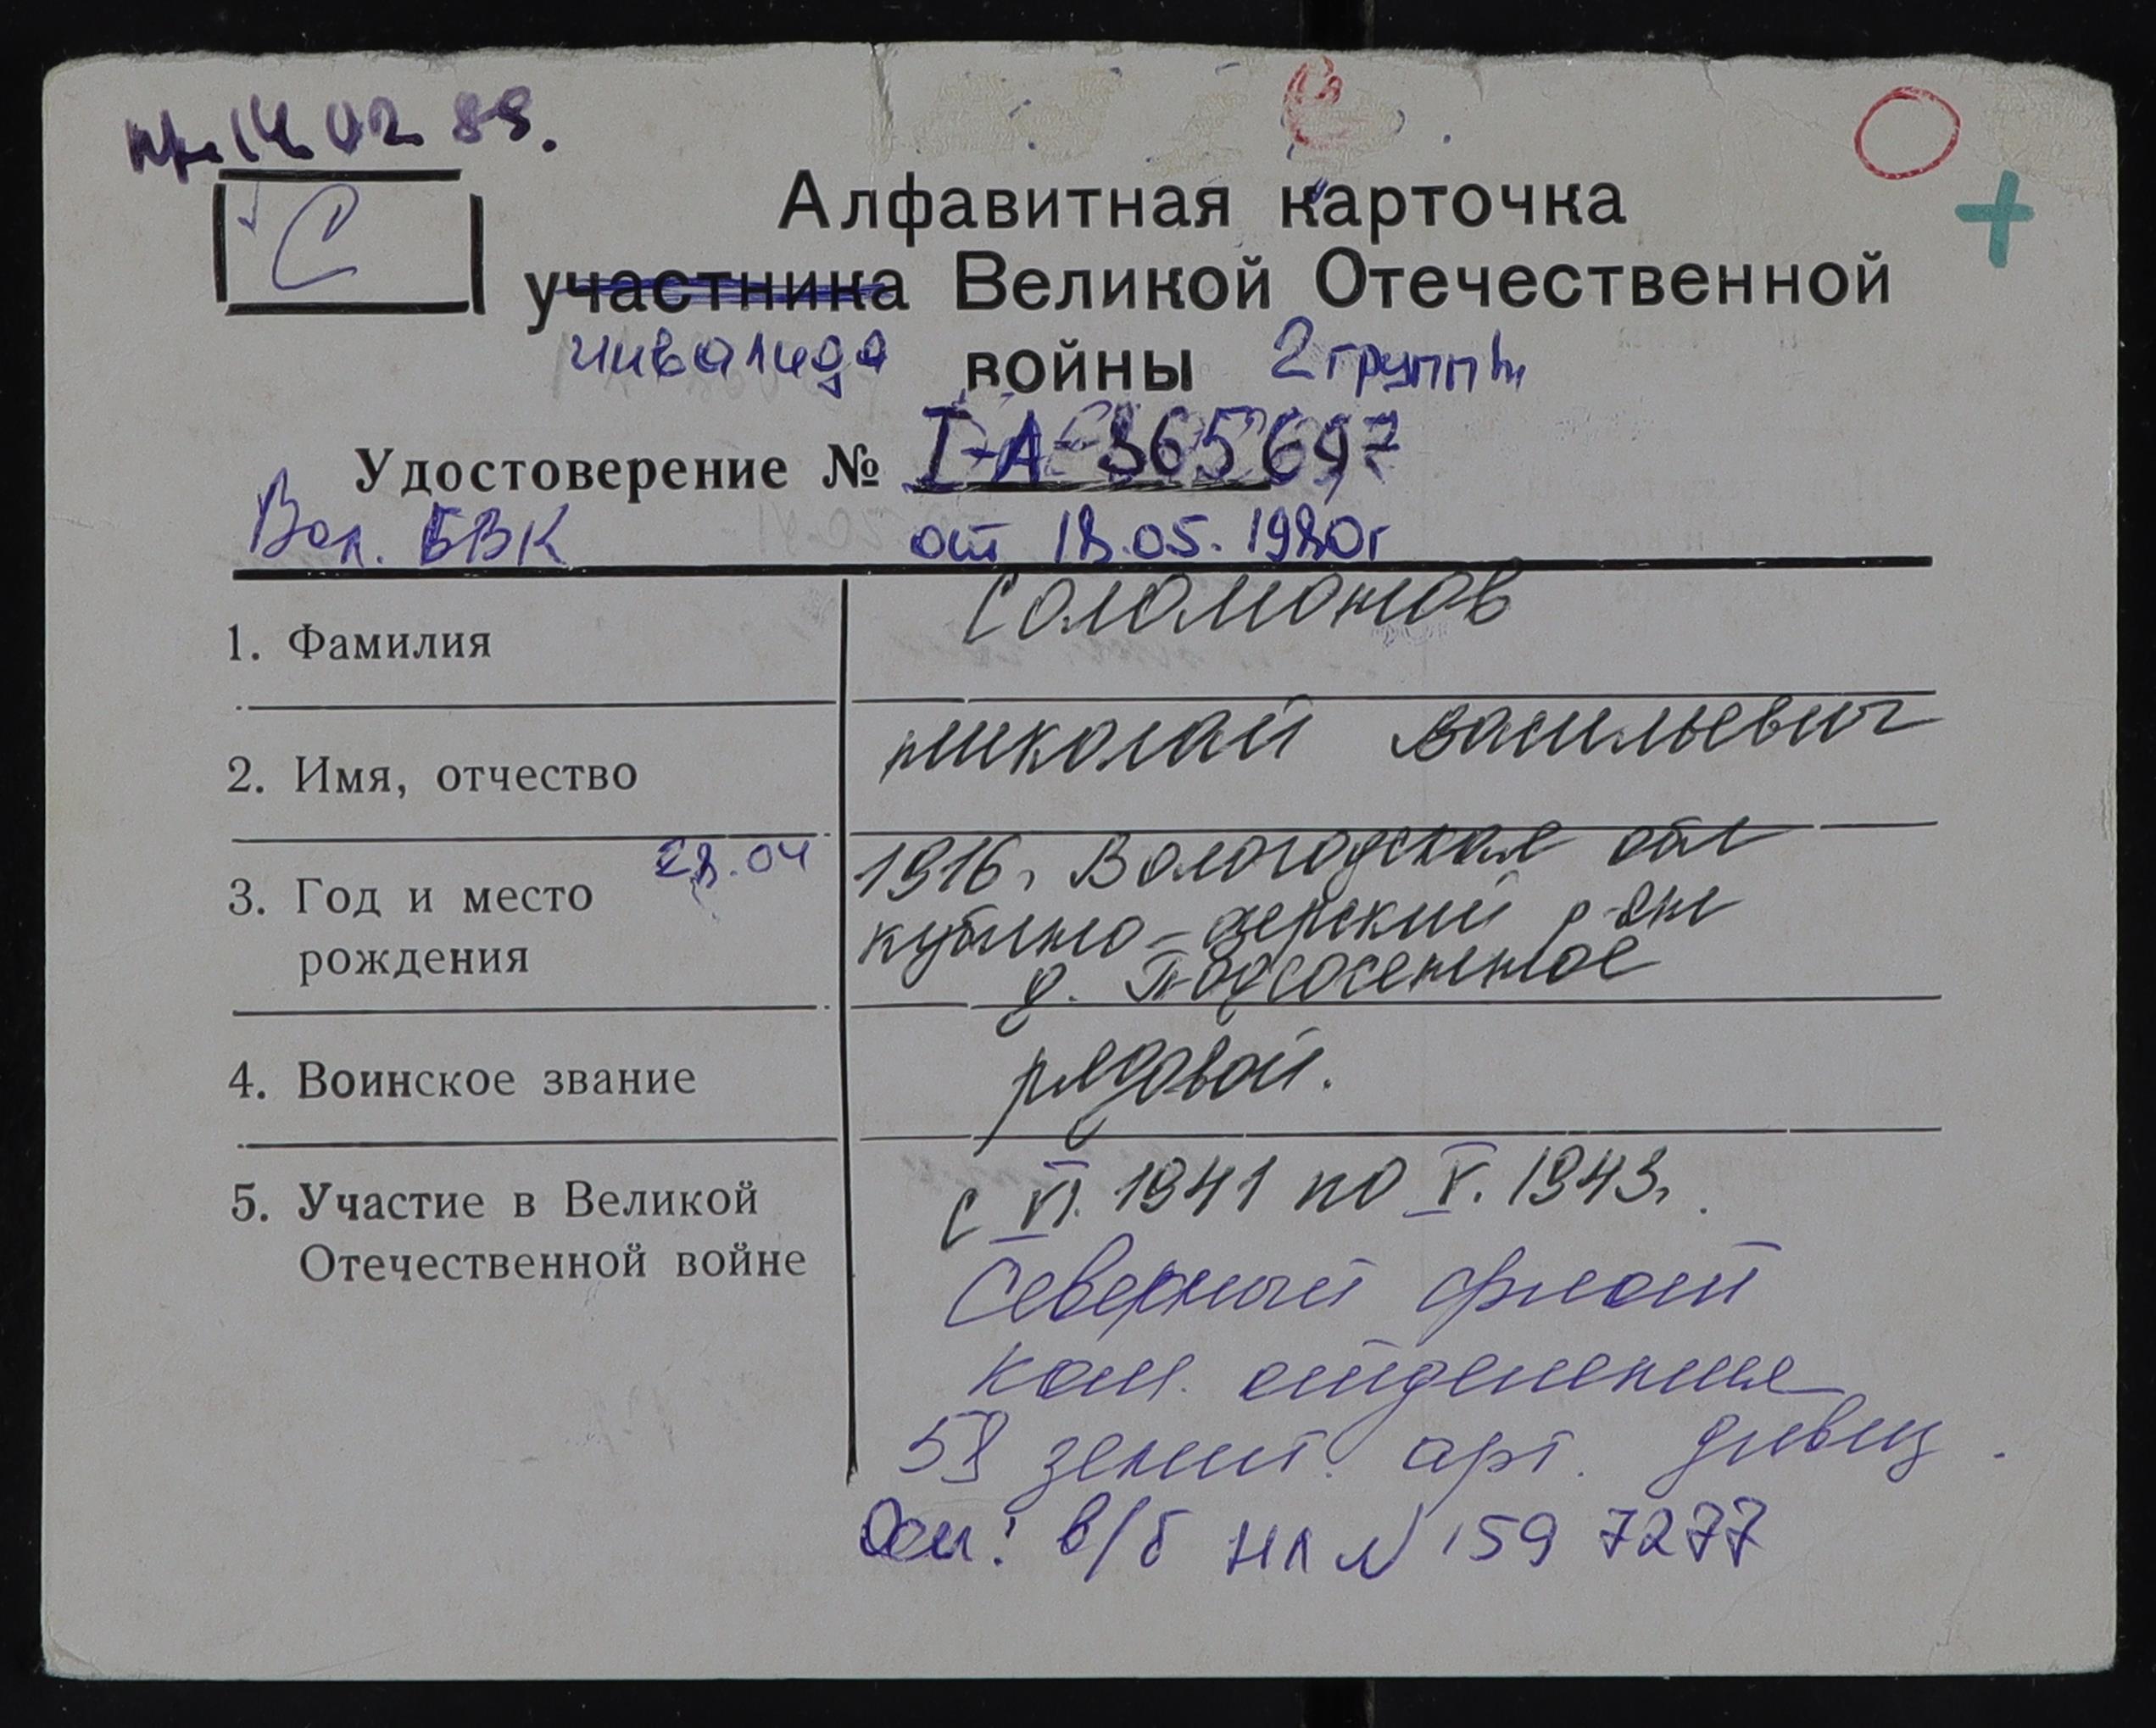 14 02 89.
С
Алфавитная карточка
участника Великой Отечественной
инвалида войны 2 группы
Удостоверение № I-А-365697
Вол. БВК от 18.05.1980г
1. Фамилия Соломонов
2. Имя, отчество николай васильевич
3. Год и место рождения 28.04 1916г Вологодская обл
кубино-озерский р-он
д. Подсосенное
4. Воинское звание рядовой.
5. Участие в Великой Отечественной войне с VI. 1941 по V. 1943г.
Северный флот
ком. отделения
58 зенит. арт. дивиз.
Осн: в/б НЛ № 159 7277